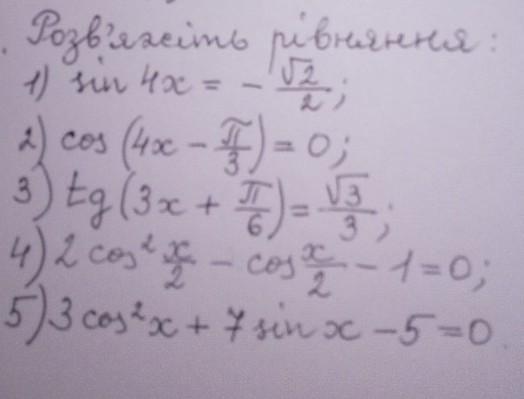 . Розв'яжіть рівняння:
1) sin 4x = - √2/2;
2) cos (4x - π/3) = 0;
3) tg (3x + π/6) = √3/3;
4) 2 cos² x/2 - cos x/2 - 1 = 0;
5) 3 cos² x + 7 sin x - 5 = 0